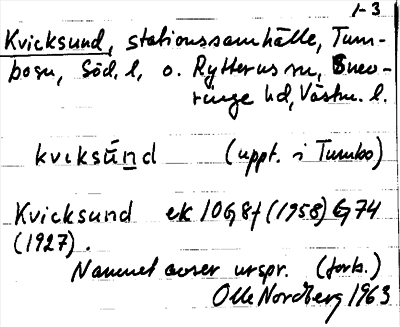 1-3
Kvicksund, stationssamhälle, Tum-
bosn, Söd. l, o. Rytterns sn, Snev-
ringe hd, Västm. l.
kvɩksún̲d (uppt. i Tumbo)
Kvicksund ek 10G,8f (1958) G,74
(1927).
Namnet avser urspr. (forts.)
Olle Nordberg 1963